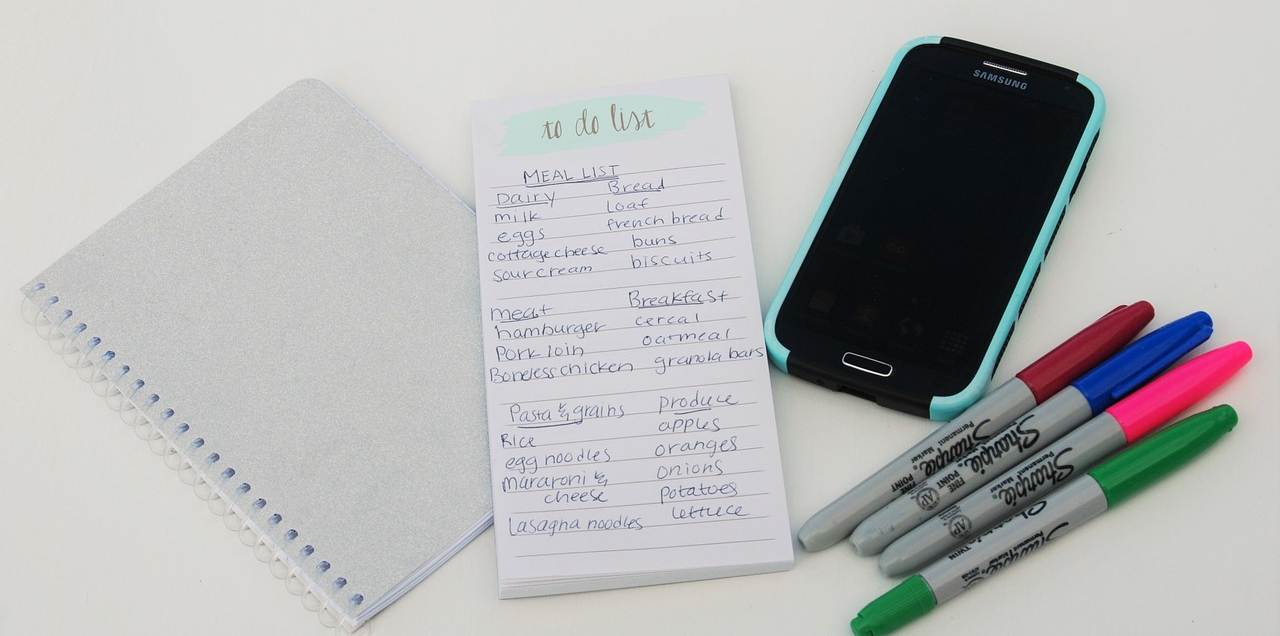 to do list
MEAL LIST
Dairy Bread
milk loaf
eggs french bread
cottage cheese buns
sour cream biscuits
meat Breakfast
hamburger cereal
Pork loin oatmeal
Boneless chicken granola bars
Pasta & grains produce
Rice apples
egg noodles oranges
mararoni & onions
cheese potatoes
lasagna noodles lettuce
SAMSUNG
Sharpie
Permanent Marker
FINE POINT
Sharpie
FINE POINT
AP
Sharpie
Permanent Marker
AP
Sharpie
TWIN
Permanent Marker